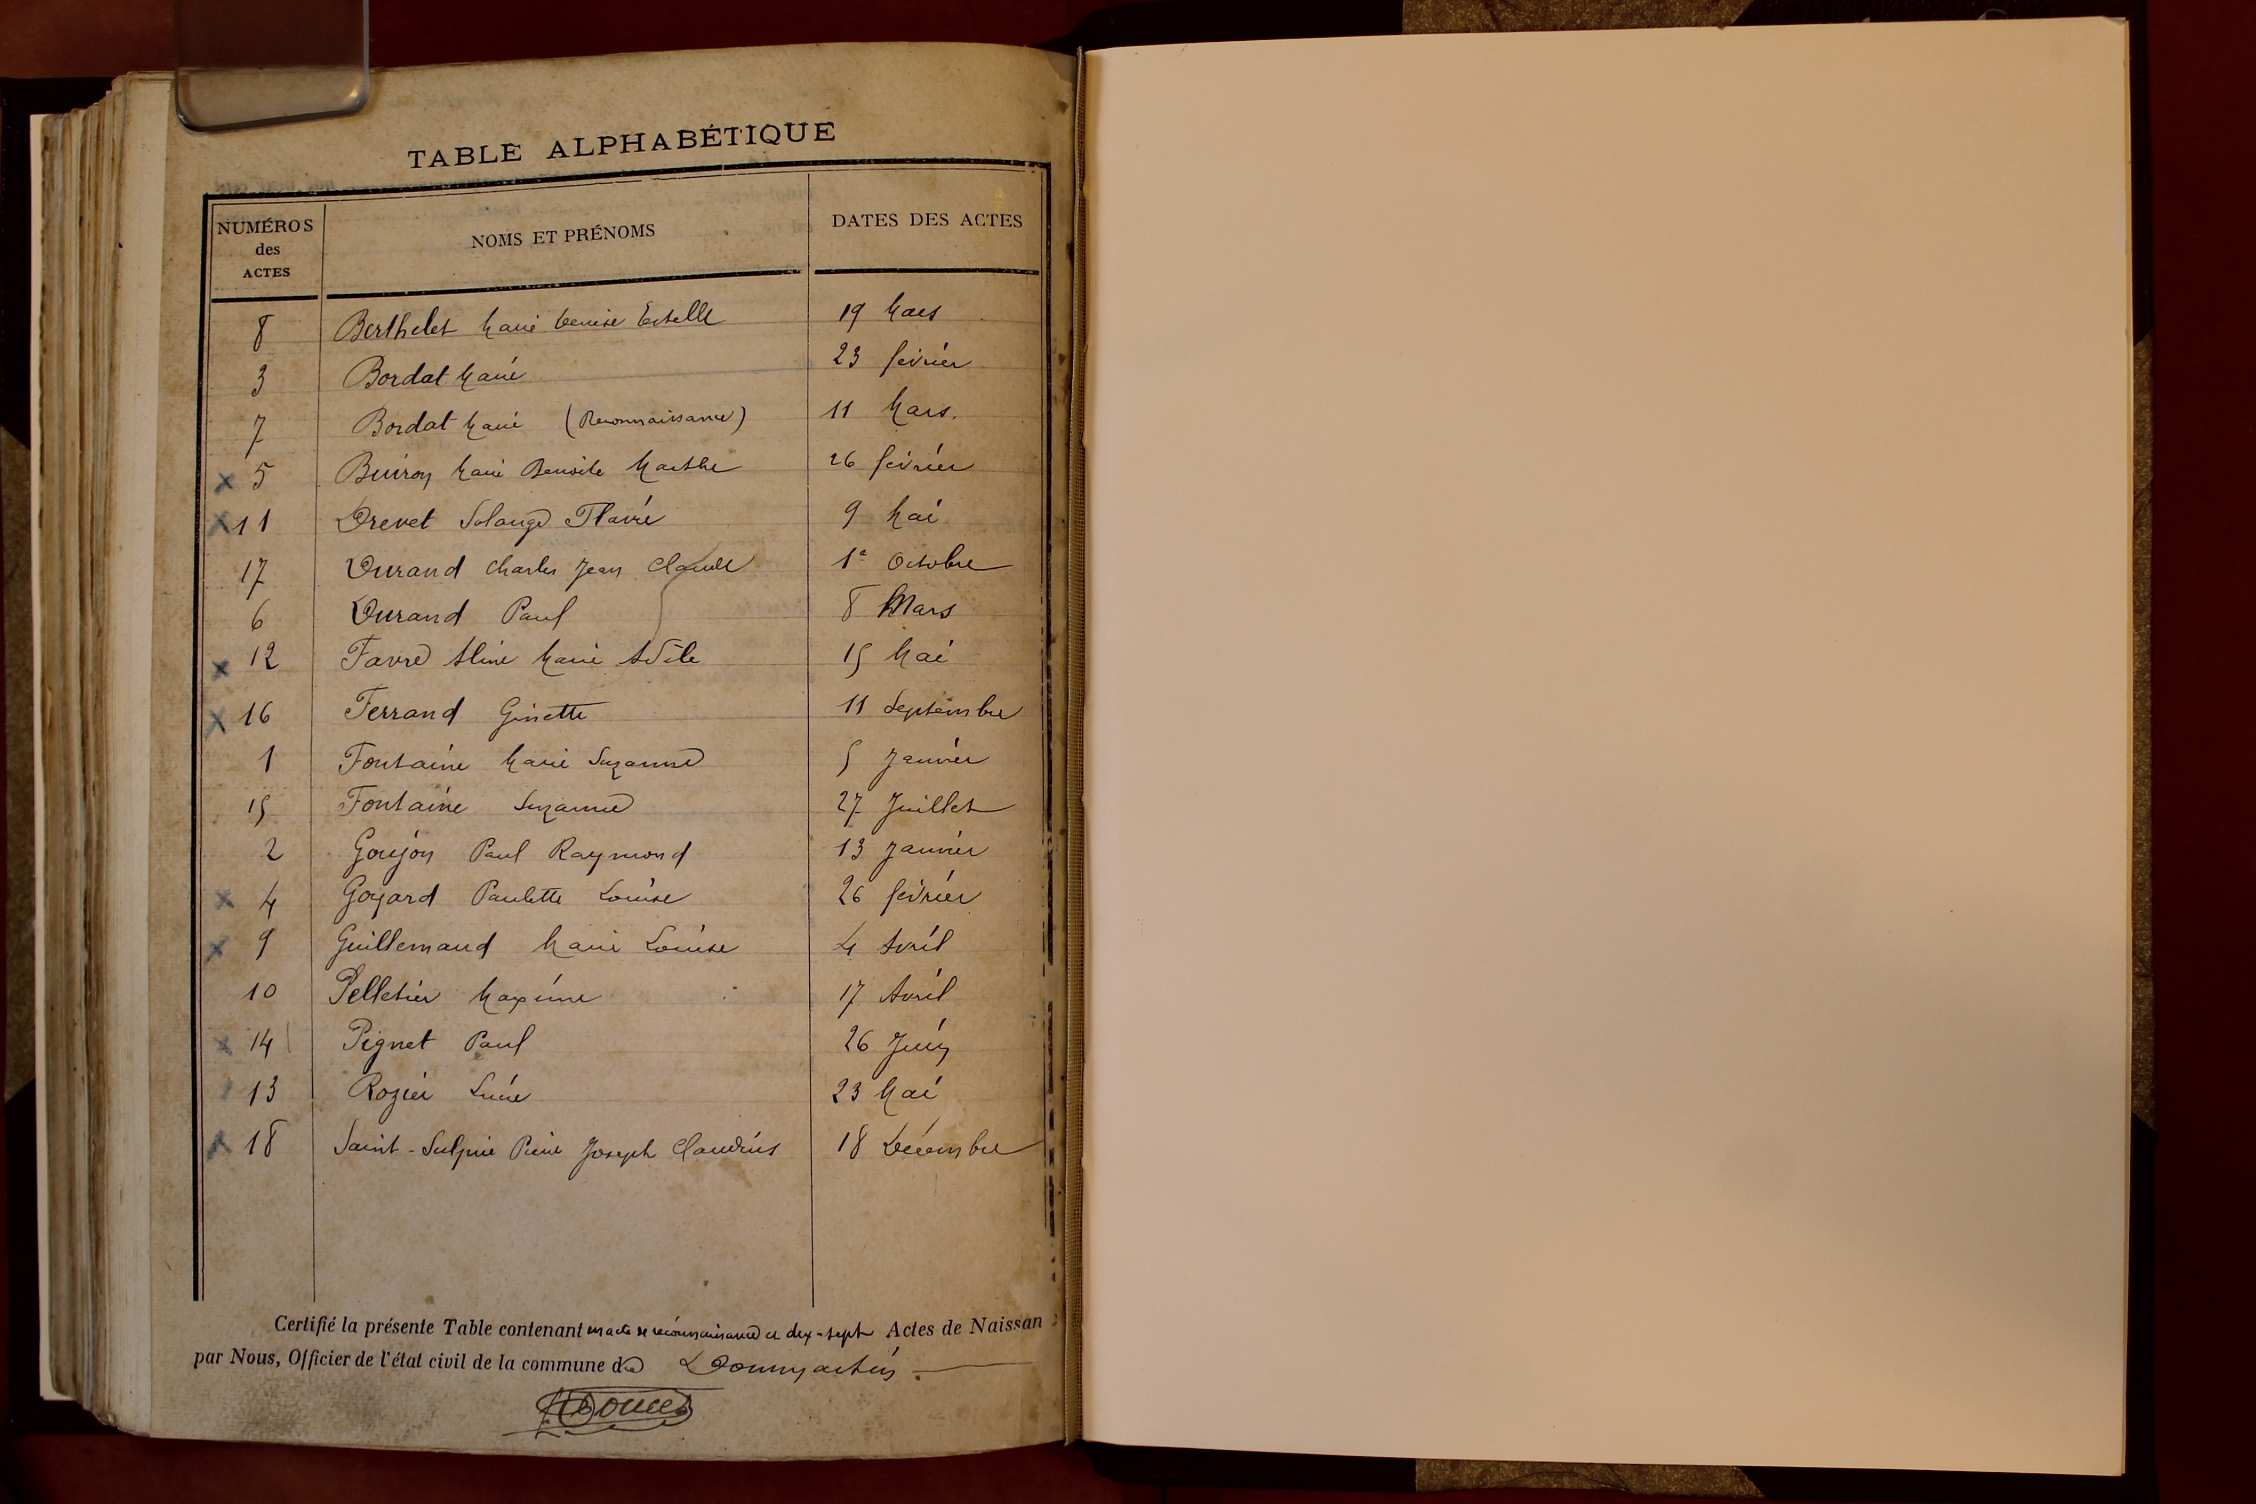 TABLE ALPHABÉTIQUE
NUMÉROS des ACTES NOMS ET PRÉNOMS DATES DES ACTES
8 Berthelet Marie Denise Estelle 19 Mars
3 Bordat Marie 23 février
7 Bordat Marie (Reconnaissance) 11 Mars.
x 5 Buiron Marie Benoite Marthe 26 février
x 11 Drevet Solange Flavie 9 Mai
17 Durand Charles Jean Claude 1e Octobre
6 Durand Paul 8 Mars
x 12 Favre Aline Marie Adèle 15 Mai
x 16 Ferrand Ginette 11 Septembre
1 Fontaine Marie Suzanne 5 Janvier
15 Fontaine Suzanne 27 Juillet
2 Goujon Paul Raymond 13 Janvier
x 4 Goyard Paulette Louise 26 février
x 9 Guillemaud Marie Louise 4 Avril
10 Pelletier Maxime 17 Avril
x 14 Pignet Paul 26 Juin
13 Rozier Lucie 23 Mai
x 18 Saint-Sulpice Pierre Joseph Claudius 18 Décembre
Certifié la présente Table contenant un acte de reconnaissance et dix-sept Actes de Naissan
par Nous, Officier de l'état civil de la commune de Dommartin